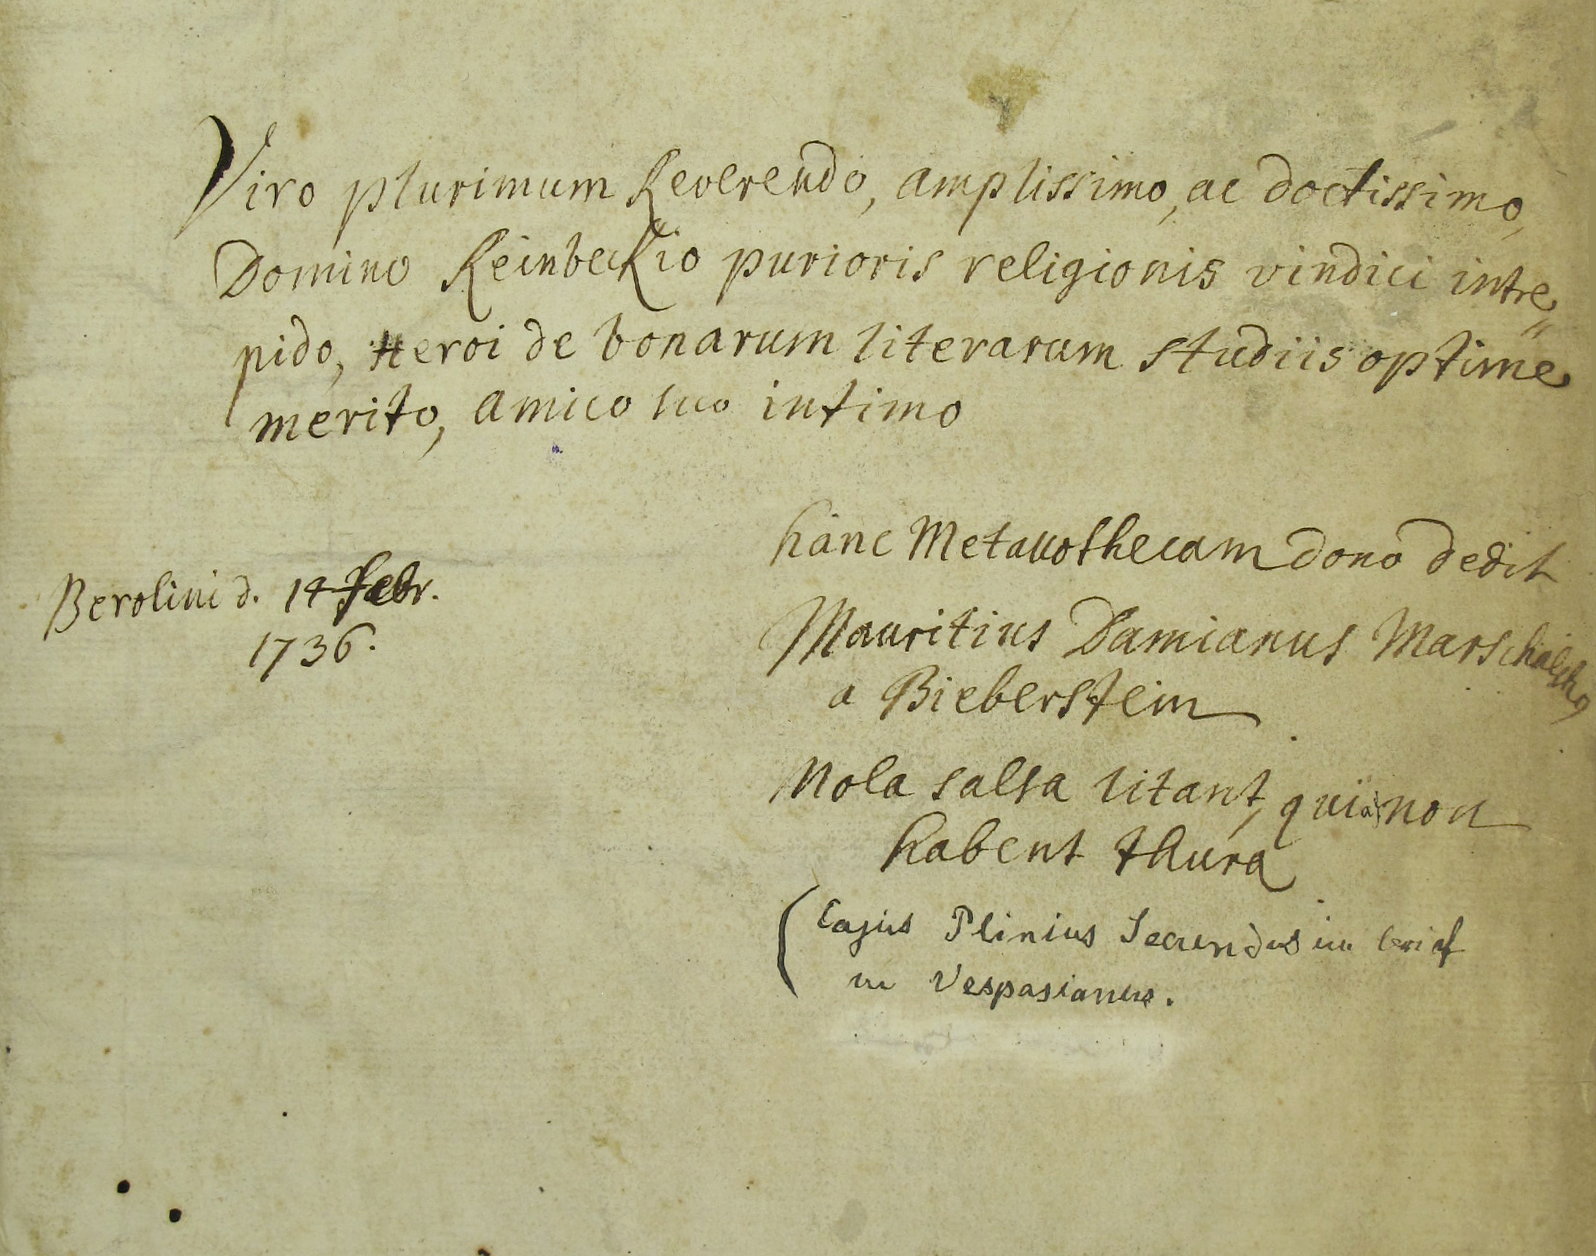 Viro plurimum Reverendo, amplissimo, ac doctissimo,
Domino Reinbeckio purioris religionis vindici intre„
pido, Heroi de bonarum literarum studiis optime
merito, amico suo intimo
hanc Metallothecam dono dedit
Berolini d. 14 febr.
1736.
Mauritius Damianus Marschalckg
a Bieberstein
Mola salsa litant, qui non
habent thura
(Cajus Plinius Secundus in
in Vespasianus.